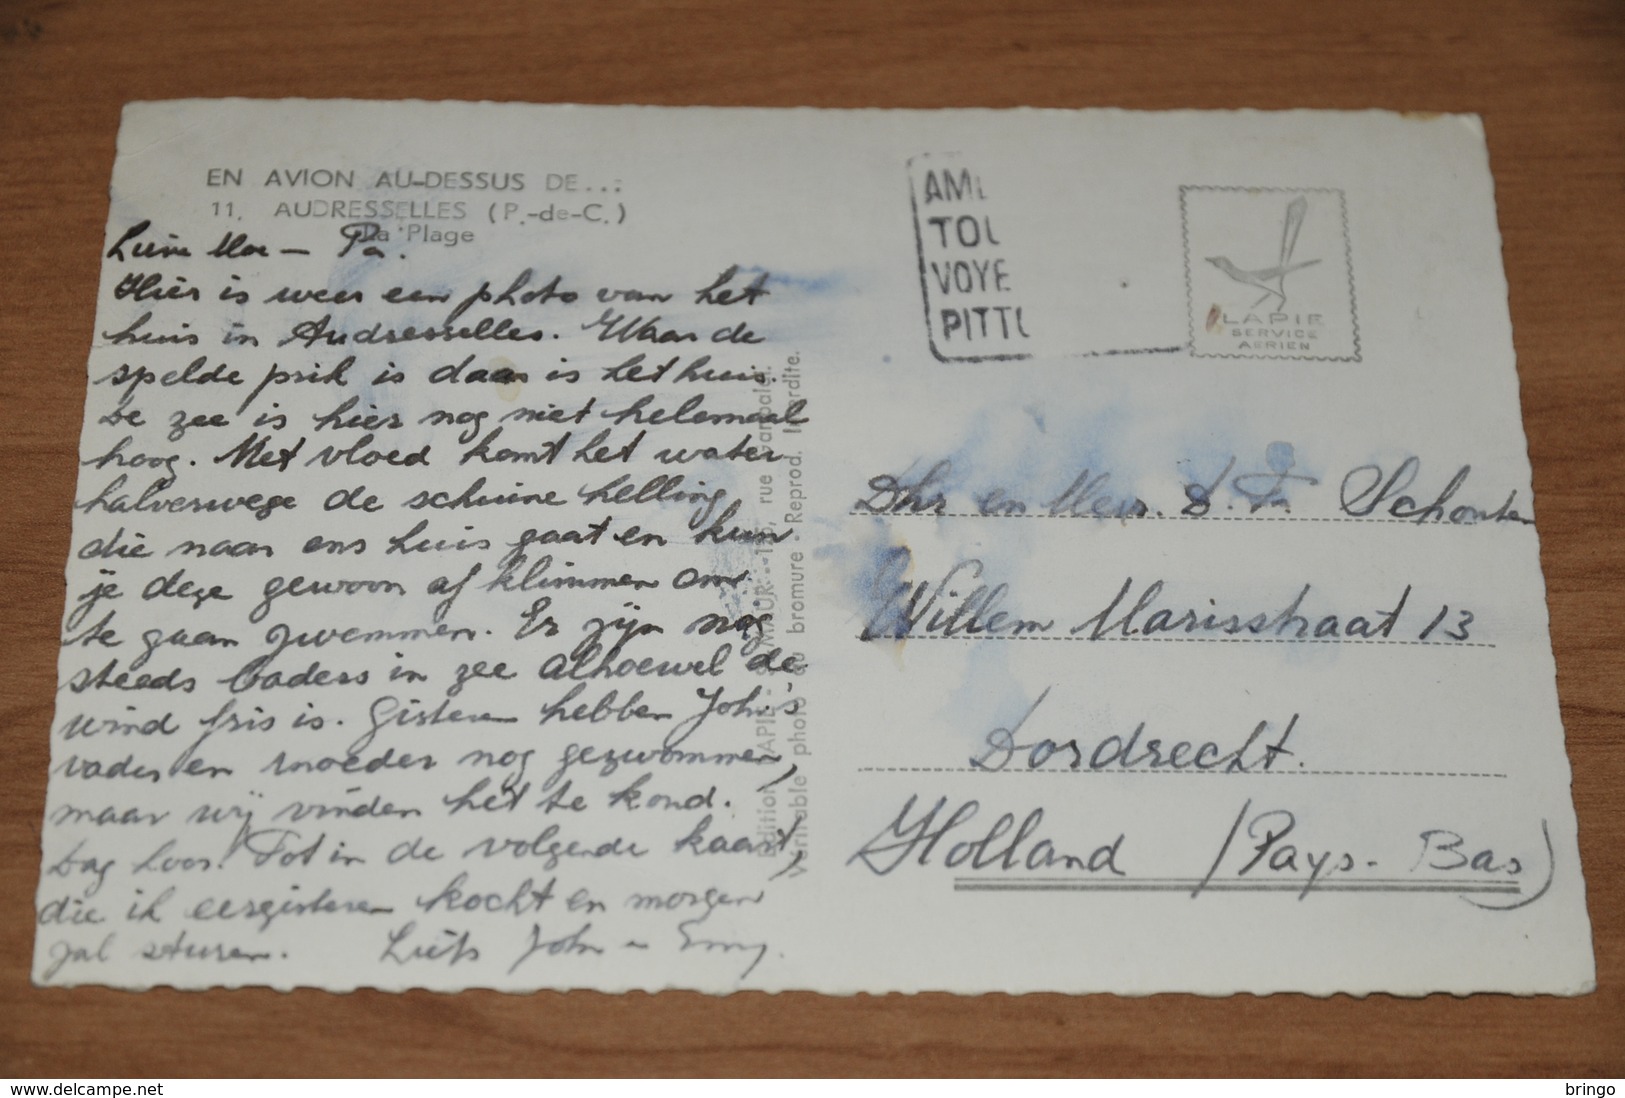 EN AVION AU-DESSUS DE...
11. AUDRESSELLES (P.-de-C.)
La Plage
Lieve Moe – Pa.
Hier is weer een photo van het
huis in Audresselles. Waar de
spelde prik is daar is het huis.
De zee is hier nog niet helemaal
hoog. Met vloed komt het water
halverwege de schuine helling
die naar ons huis gaat en kun
je deze gewoon af klimmen om
te gaan zwemmen. Er zijn nog
steeds baders in zee alhoewel de
wind fris is. Gisteren hebben John's
vader en moeder nog gezwommen,
maar wij vinden het te koud.
Dag hoor! Tot in de volgende kaart,
die ik eergisteren kocht en morgen
zal sturen. Liefs John en Emy.
Edition LAPIE rue
Véritable photo au bromure - Reprod. Interdite.
AMI
TOU
VOYE
PITTO
LAPIE
SERVICE
AERIEN
Dhr en Mevr. D. Fr. Schouten
Willem Marisstraat 13
Dordrecht.
Holland (Pays-Bas)
delcampe.net
bringo